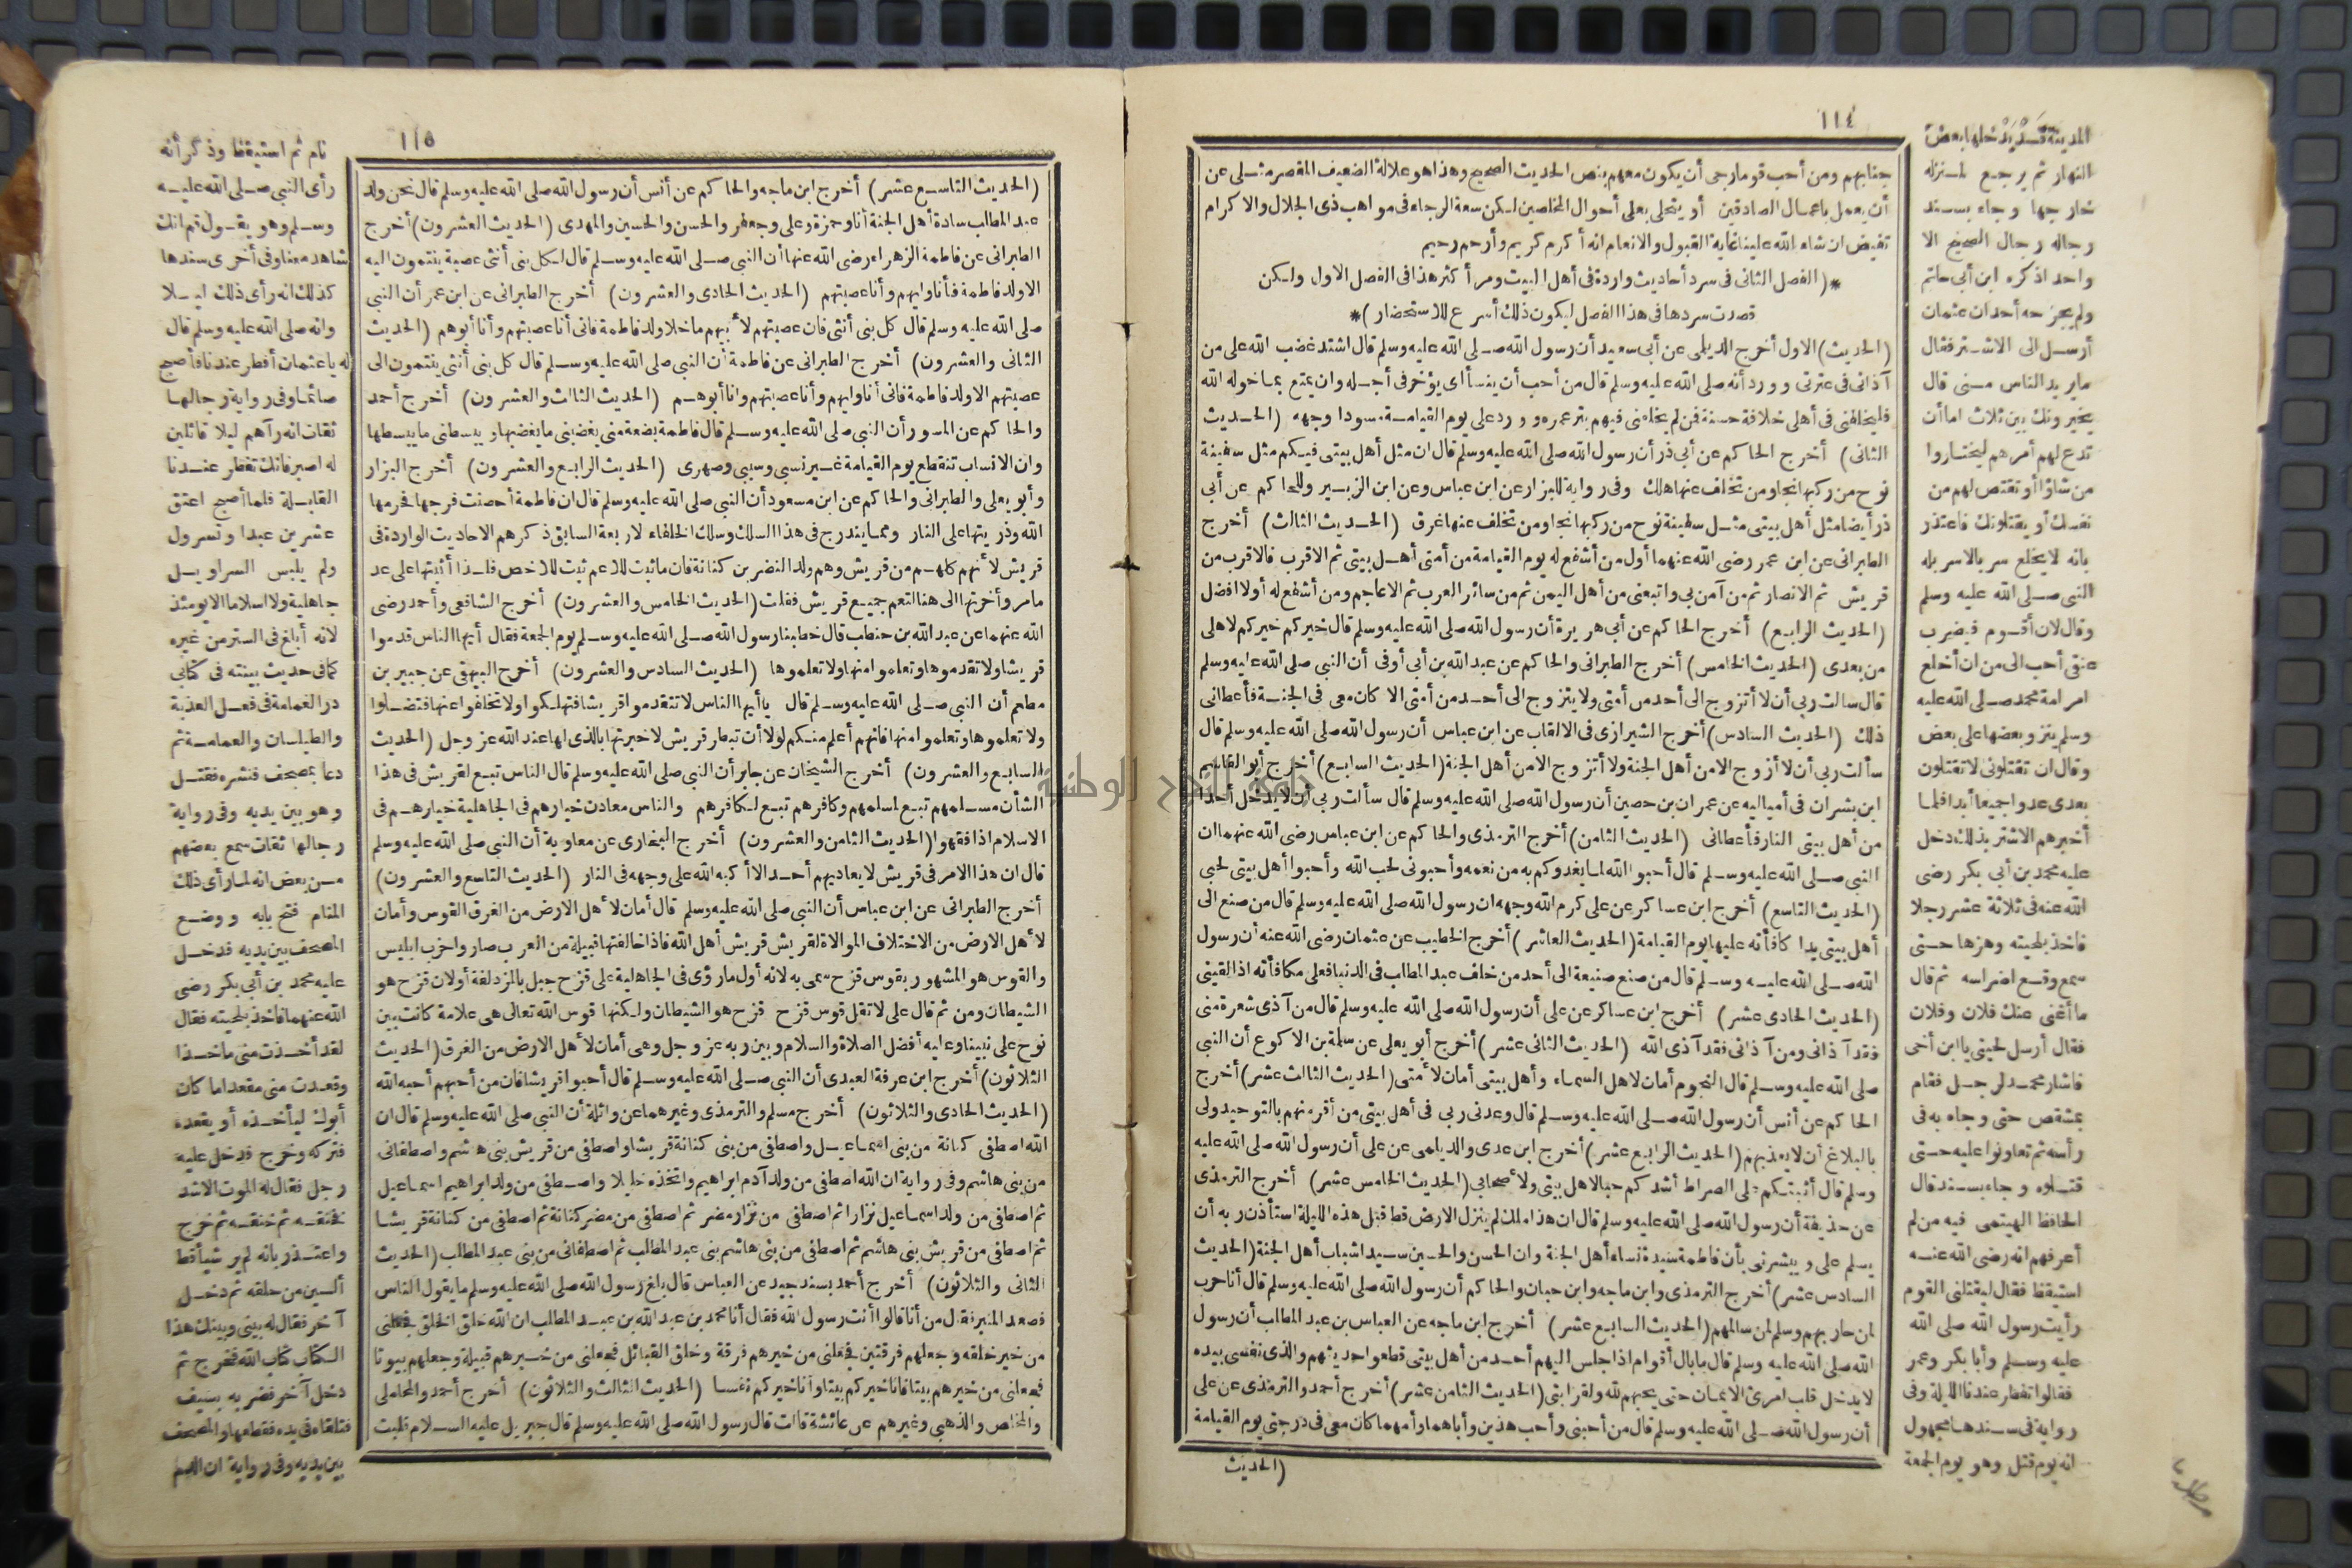 ١١٤
جنابهم ومن أحب قوما رجى أن يكون معهم بنص الحديث الصحيح وهذا هو علالة الضعيف المقصر مثلى عن
أن يعمل باعمال الصادقين أو يتحلى بعلى أحوال المخلصين لكن سعة الرجاء فى مواهب ذى الجلال والاكرام
تفيض ان شاء الله علينا غاية القبول والانعام انه أكرم كريم وأرحم رحيم
*(الفصل الثانى فى سرد أحاديث واردة فى أهل البيت ومر أكثر هذا فى الفصل الاول ولكن
قصدت سردها فى هذا الفصل ليكون ذلك أسرع للاستحضار)*
(الحديث) الاول أخرج الديلمى عن أبى سعيد أن رسول الله صلى الله عليه وسلم قال اشتد غضب الله على من
آذانى فى عترتى وورد أنه صلى الله عليه وسلم قال من أحب أن ينسأ اى يؤخر فى أجله وان يمتع بما خوله الله
فليخلفنى فى أهلى خلافة حسنة فمن لم يخلفنى فيهم بتر عمره وورد على يوم القيامة مسودا وجهه (الحديث
الثانى) أخرج الحاكم عن أبى ذر أن رسول الله صلى الله عليه وسلم قال ان مثل أهل بيتى فيكم مثل سفينة
نوح من ركبها نجا ومن تخلف عنها هلك وفى رواية للبزار عن ابن عباس وعن ابن الزبير وللحاكم عن أبى
ذر أيضا مثل أهل بيتى مثل سفينة نوح من ركبها نجا ومن تخلف عنها غرق (الحديث الثالث) أخرج
الطبرانى عن ابن عمر رضى الله عنهما أول من أشفع له يوم القيامة من أمتى أهل بيتى ثم الاقرب فالاقرب من
قريش ثم الانصار ثم من آمن بى واتبعنى من أهل اليمن ثم من سائر العرب ثم الاعاجم ومن أشفع له أولا افضل
(الحديث الرابع) أخرج الحاكم عن أبى هريرة أن رسول الله صلى الله عليه وسلم قال خيركم خيركم لاهلى
من بعدى (الحديث الخامس) أخرج الطبرانى والحاكم عن عبد الله بن أبى أوفى أن النبى صلى الله عليه وسلم
قال سالت ربى أن لا أتزوج الى أحد من أمتى ولا يتزوج الى أحد من أمتى الا كان معى فى الجنة فأعطانى
ذلك (الحديث السادس) أخرج الشيرازى فى الالقاب عن ابن عباس أن رسول الله صلى الله عليه وسلم قال
سألت ربى أن لا أزوج الا من أهل الجنة ولا أتزوج الا من أهل الجنة (الحديث السابع) أخرج أبو القاسم
ابن بشران فى أماليه عن عمران بن حصين أن رسول الله صلى الله عليه وسلم قال سألت ربى أن لا يدخل أحدا
من أهل بيتى النار فأعطانى (الحديث الثامن) أخرج الترمذى والحاكم عن ابن عباس رضى الله عنهما ان
النبى صلى الله عليه وسلم قال أحبوا الله لما يغدوكم به من نعمه وأحبونى لحب الله وأحبوا أهل بيتى لحبى
(الحديث التاسع) أخرج ابن عساكر عن على كرم الله وجهه ان رسول الله صلى الله عليه وسلم قال من صنع الى
أهل بيتى يدا كافأته عليها يوم القيامة (الحديث العاشر) أخرج الخطيب عن عثمان رضى الله عنه أن رسول
الله صلى الله عليه وسلم قال من صنع صنيعة الى أحد من خلف عبد المطلب فى الدنيا فعلى مكافأته اذا لقينى
(الحديث الحادى عشر) أخرج ابن عساكر عن على أن رسول الله صلى الله عليه وسلم قال من آذى شعرة منى
فقد آذانى ومن آذانى فقد آذى الله (الحديث الثانى عشر) أخرج أبو يعلى عن سلمة بن الاكوع أن النبى
صلى الله عليه وسلم قال النجوم أمان لاهل السماء وأهل بيتى أمان لأمتى (الحديث الثالث عشر) أخرج
الحاكم عن أنس أن رسول الله صلى الله عليه وسلم قال وعدنى ربى فى أهل بيتى من أقر منهم بالتوحيد ولى
بالبلاغ أن لا يعذبهم (الحديث الرابع عشر) أخرج ابن عدى والديلمى عن على أن رسول الله صلى الله عليه
وسلم قال أثبتكم على الصراط أشدكم حبا لاهل بيتى ولأصحابى (الحديث الخامس عشر) أخرج الترمذى
عن حذيفة أن رسول الله صلى الله عليه وسلم قال ان هذا ملك لم ينزل الارض قط قبل هذه الليلة استأذن ربه أن
يسلم على ويبشرنى بأن فاطمة سيدة نساء أهل الجنة وان الحسن والحسين سيدا شباب أهل الجنة (الحديث
السادس عشر) أخرج الترمذى وابن ماجه وابن حبان والحاكم أن رسول الله صلى الله عليه وسلم قال أنا حرب
لمن حاربهم وسلم لمن سالمهم (الحديث السابع عشر) أخرج ابن ماجه عن العباس بن عبد المطلب أن رسول
الله صلى الله عليه وسلم قال ما بال أقوام اذا جلس اليهم أحد من أهل بيتى قطعوا حديثهم والذى نفسى بيده
لا يدخل قلب امرئ الايمان حتى يحبهم لله ولقرابتى (الحديث الثامن عشر) أخرج أحمد والترمذى عن على
أن رسول الله صلى الله عليه وسلم قال من أحبنى وأحب هذين وأباهما وأمهما كان معى فى درجتى يوم القيامة
(الحديث
المدينة دخلها بعض
النهار ثم يرجع لمنزله
خارجها وجاء بسند
رجاله رجال الصحيح الا
واحد اذكره ابن أبى حاتم
ولم يجرحه أحد ان عثمان
أرسل الى الاشتر فقال
ما يريد الناس منى قال
يخيرونك بين ثلاث اما أن
تدع لهم أمرهم ليختاروا
من شاؤا أو تقتص لهم من
نفسك أو يقتلونك فاعتذر
بانه لا يخلع سربالا سربله
النبى صلى الله عليه وسلم
وقال لان أقوم فيضرب
عنقى أحب الى من ان أخلع
امر امة محمد صلى الله عليه
وسلم ينزو بعضها على بعض
وقال ان تقتلونى لا تقتلون
بعدى عدوا جميعا أبدا فلما
أخبرهم الاشتر بذلك دخل
عليه محمد بن أبى بكر رضى
الله عنه فى ثلاثة عشر رجلا
فاخذ بلحيته وهزها حتى
سمع وقع اضراسه ثم قال
ما أغنى عنك فلان وفلان
فقال أرسل لحيتى يا ابن أخى
فاشار محمد لرجل فقام
بمشقص حتى وجاء به فى
رأسه ثم تعاونوا عليه حتى
قتلوه وجاء بسند قال
الحافظ الهيتمى فيه من لم
أعرفهم انه رضى الله عنه
استيقظ فقال ليقتلنى القوم
رأيت رسول الله صلى الله
عليه وسلم وأبا بكر وعمر
فقالوا تفطر عندنا الليلة وفى
رواية فى سندها مجهول
انه يوم قتل وهو يوم الجمعة
١١٥
(الحديث التاسع عشر) أخرج ابن ماجه والحاكم عن أنس أن رسول الله صلى الله عليه وسلم قال نحن ولد
عبد المطلب سادة أهل الجنة أنا وحمزة وعلى وجعفر والحسن والحسين والمهدى (الحديث العشرون) أخرج
الطبرانى عن فاطمة الزهراء رضى الله عنها أن النبى صلى الله عليه وسلم قال لكل بنى أنثى عصبة ينتمون اليه
الا ولد فاطمة فأنا وليهم وأنا عصبتهم (الحديث الحادى والعشرون) أخرج الطبرانى عن ابن عمر أن النبى
صلى الله عليه وسلم قال كل بنى أنثى فان عصبتهم لأبيهم ما خلا ولد فاطمة فانى أنا عصبتهم وأنا أبوهم (الحديث
الثانى والعشرون) أخرج الطبرانى عن فاطمة أن النبى صلى الله عليه وسلم قال كل بنى أنثى ينتمون الى
عصبتهم الا ولد فاطمة فانى أنا وليهم وأنا عصبتهم وانا أبوهم (الحديث الثالث والعشرون) أخرج أحمد
والحاكم عن المسور أن النبى صلى الله عليه وسلم قال فاطمة بضعة منى يغضبنى ما يغضبها ويبسطنى ما يبسطها
وان الانساب تنقطع يوم القيامة غير نسبى وسببى وصهرى (الحديث الرابع والعشرون) أخرج البزار
وأبو يعلى والطبرانى والحاكم عن ابن مسعود أن النبى صلى الله عليه وسلم قال ان فاطمة أحصنت فرجها فحرمها
الله وذريتها على النار ومما يندرج فى هذا السلك وسلك الخلفاء الاربعة السابق ذكرهم الاحاديث الواردة فى
قريش لأنهم كلهم من قريش وهم ولد النضر بن كنانة فان ما ثبت للاعم ثبت للاخص فلذا أثبتها على عد
ما مر وأخرتها الى هنا لتعم جميع قريش فقلت (الحديث الخامس والعشرون) أخرج الشافعى وأحمد رضى
الله عنهما عن عبد الله بن حنطب قال خطبنا رسول الله صلى الله عليه وسلم يوم الجمعة فقال أيها الناس قدموا
قريشا ولا تقدموها وتعلموا منها ولا تعلموها (الحديث السادس والعشرون) أخرج البيهقى عن جبير بن
مطعم أن النبى صلى الله عليه وسلم قال يا أيها الناس لا تتقدموا قريشا فتهلكوا ولا تخلفوا عنها فتضلوا
ولا تعلموها وتعلموا منها فانهم أعلم منكم لولا أن تبطر قريش لاخبرتها بالذى لها عند الله عز وجل (الحديث
السابع والعشرون) أخرج الشيخان عن جابر أن النبى صلى الله عليه وسلم قال الناس تبع لقريش فى هذا
الشأن مسلمهم تبع لمسلمهم وكافرهم تبع لكافرهم والناس معادن خيارهم فى الجاهلية خيارهم فى
الاسلام اذا فقهوا (الحديث الثامن والعشرون) أخرج البخارى عن معاوية أن النبى صلى الله عليه وسلم
قال ان هذا الامر فى قريش لا يعاديهم أحد الا أكبه الله على وجهه فى النار (الحديث التاسع والعشرون)
أخرج الطبرانى عن ابن عباس أن النبى صلى الله عليه وسلم قال أمان لأهل الارض من الغرق القوس وأمان
لأهل الارض من الاختلاف الموالاة لقريش قريش أهل الله فاذا خالفتها قبيلة من العرب صاروا حزب ابليس
والقوس هو المشهور بقوس قزح سمى به لانه أول ما رؤى فى الجاهلية على قزح جبل بالمزدلفة أو لان قزح هو
الشيطان ومن ثم قال على لا تقل قوس قزح قزح هو الشيطان ولكنها قوس الله تعالى هى علامة كانت بين
نوح على نبينا وعليه أفضل الصلاة والسلام وبين ربه عز وجل وهى أمان لأهل الارض من الغرق (الحديث
الثلاثون) أخرج ابن عرفة العبدى أن النبى صلى الله عليه وسلم قال أحبوا قريشا فان من أحبهم أحبه الله
(الحديث الحادى والثلاثون) أخرج مسلم والترمذى وغيرهما عن واثلة أن النبى صلى الله عليه وسلم قال ان
الله اصطفى كنانة من بنى اسماعيل واصطفى من بنى كنانة قريشا واصطفى من قريش بنى هاشم واصطفانى
من بنى هاشم وفى رواية ان الله اصطفى من ولد آدم ابراهيم واتخذه خليلا واصطفى من ولد ابراهيم اسماعيل
ثم اصطفى من ولد اسماعيل نزارا ثم اصطفى من نزار مضر ثم اصطفى من مضر كنانة ثم اصطفى من كنانة قريشا
ثم اصطفى من قريش بنى هاشم ثم اصطفى من بنى هاشم بنى عبد المطلب ثم اصطفانى من بنى عبد المطلب (الحديث
الثانى والثلاثون) أخرج أحمد بسند جيد عن العباس قال بلغ رسول الله صلى الله عليه وسلم ما يقول الناس
فصعد المنبر فقال من أنا قالوا أنت رسول الله فقال أنا محمد بن عبد الله بن عبد المطلب ان الله خلق الخلق فجعلنى
من خير خلقه وجعلهم فرقتين فجعلنى من خيرهم فرقة وخلق القبائل فجعلنى من خيرهم قبيلة وجعلهم بيوتا
فجعلنى من خيرهم بيتا فانا خيركم بيتا وأنا خيركم نفسا (الحديث الثالث والثلاثون) أخرج أحمد والمحاملى
والمخلص والذهبى وغيرهم عن عائشة قالت قال رسول الله صلى الله عليه وسلم قال جبريل عليه السلام قلبت
نام ثم استيقظ وذكر أنه
رأى النبى صلى الله عليه
وسلم وهو يقول قم انك
شاهد معنا وفى أخرى سندها
كذلك انه رأى ذلك ليلا
وانه صلى الله عليه وسلم قال
له يا عثمان أفطر عندنا فأصبح
صائما وفى رواية رجالها
ثقات انه رآهم ليلا قائلين
له اصبر فانك تفطر عندنا
القابلة فلما أصبح اعتق
عشرين عبدا وتسرول
ولم يلبس السراويل
جاهلية ولا اسلاما الا يومئذ
لانه أبلغ فى الستر من غيره
كما فى حديث بينته فى كتابى
در الغمامة فى فعل العذبة
والطيلسان والعمامة ثم
دعا بمصحف فنشره فقتل
وهو بين يديه وفى رواية
رجالها ثقات سمع بعضهم
من بعض انه لما رأى ذلك
المنام فتح بابه ووضع
المصحف بين يديه فدخل
عليه محمد بن أبى بكر رضى
الله عنهما فاخذ بلحيته فقال
لقد أخذت منى ماخذا
وقعدت منى مقعدا ما كان
أبوك ليأخذه أو يقعده
فتركه وخرج فدخل عليه
رجل فقال له الموت الاسد
فخنقه ثم خنقه ثم خرج
واعتذر بانه لم ير شيأ قط
ألين من حلقه ثم دخل
آخر فقال له بينى وبينك هذا
الكتاب كتاب الله فخرج ثم
دخل آخر فضربه بسيف
فتلقاه فى يده فقطعها والمصحف
بين يديه وفى رواية ان الدم
جامعة النجاح الوطنية